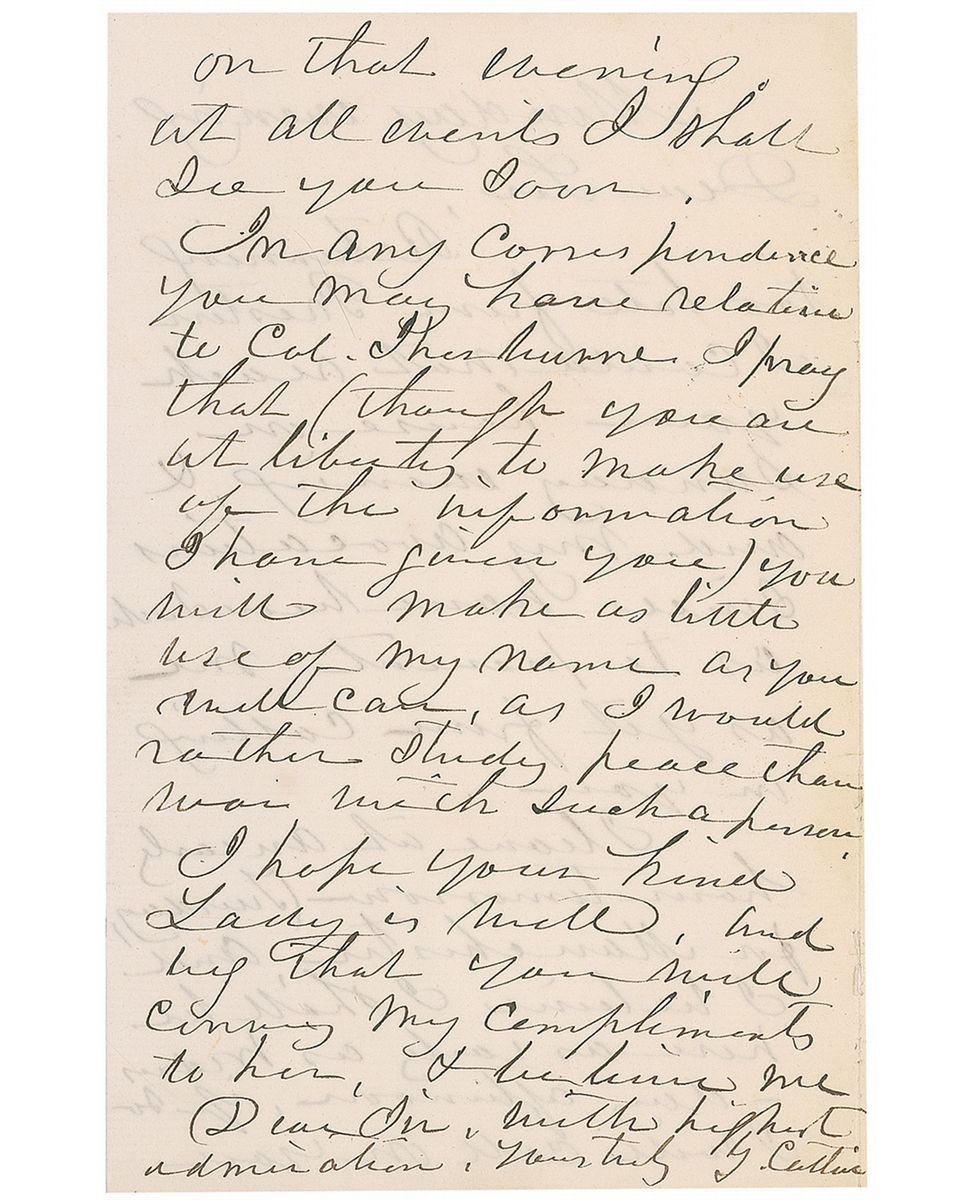 on that evening.
at all events I shall
see you soon.
In any correspondence
you may have relative
to Col. I pray
that (though you are
at liberty to make use
of the information
I have given you) you
will make as little
use of my name as you
well can, as I would
rather study peace than
war with such a person.
I hope your kind
Lady is well, and
beg that you will
convey my compliments
to her, & believe me
Dear Sir, with highest
admiration, Yours truly G. Catlin